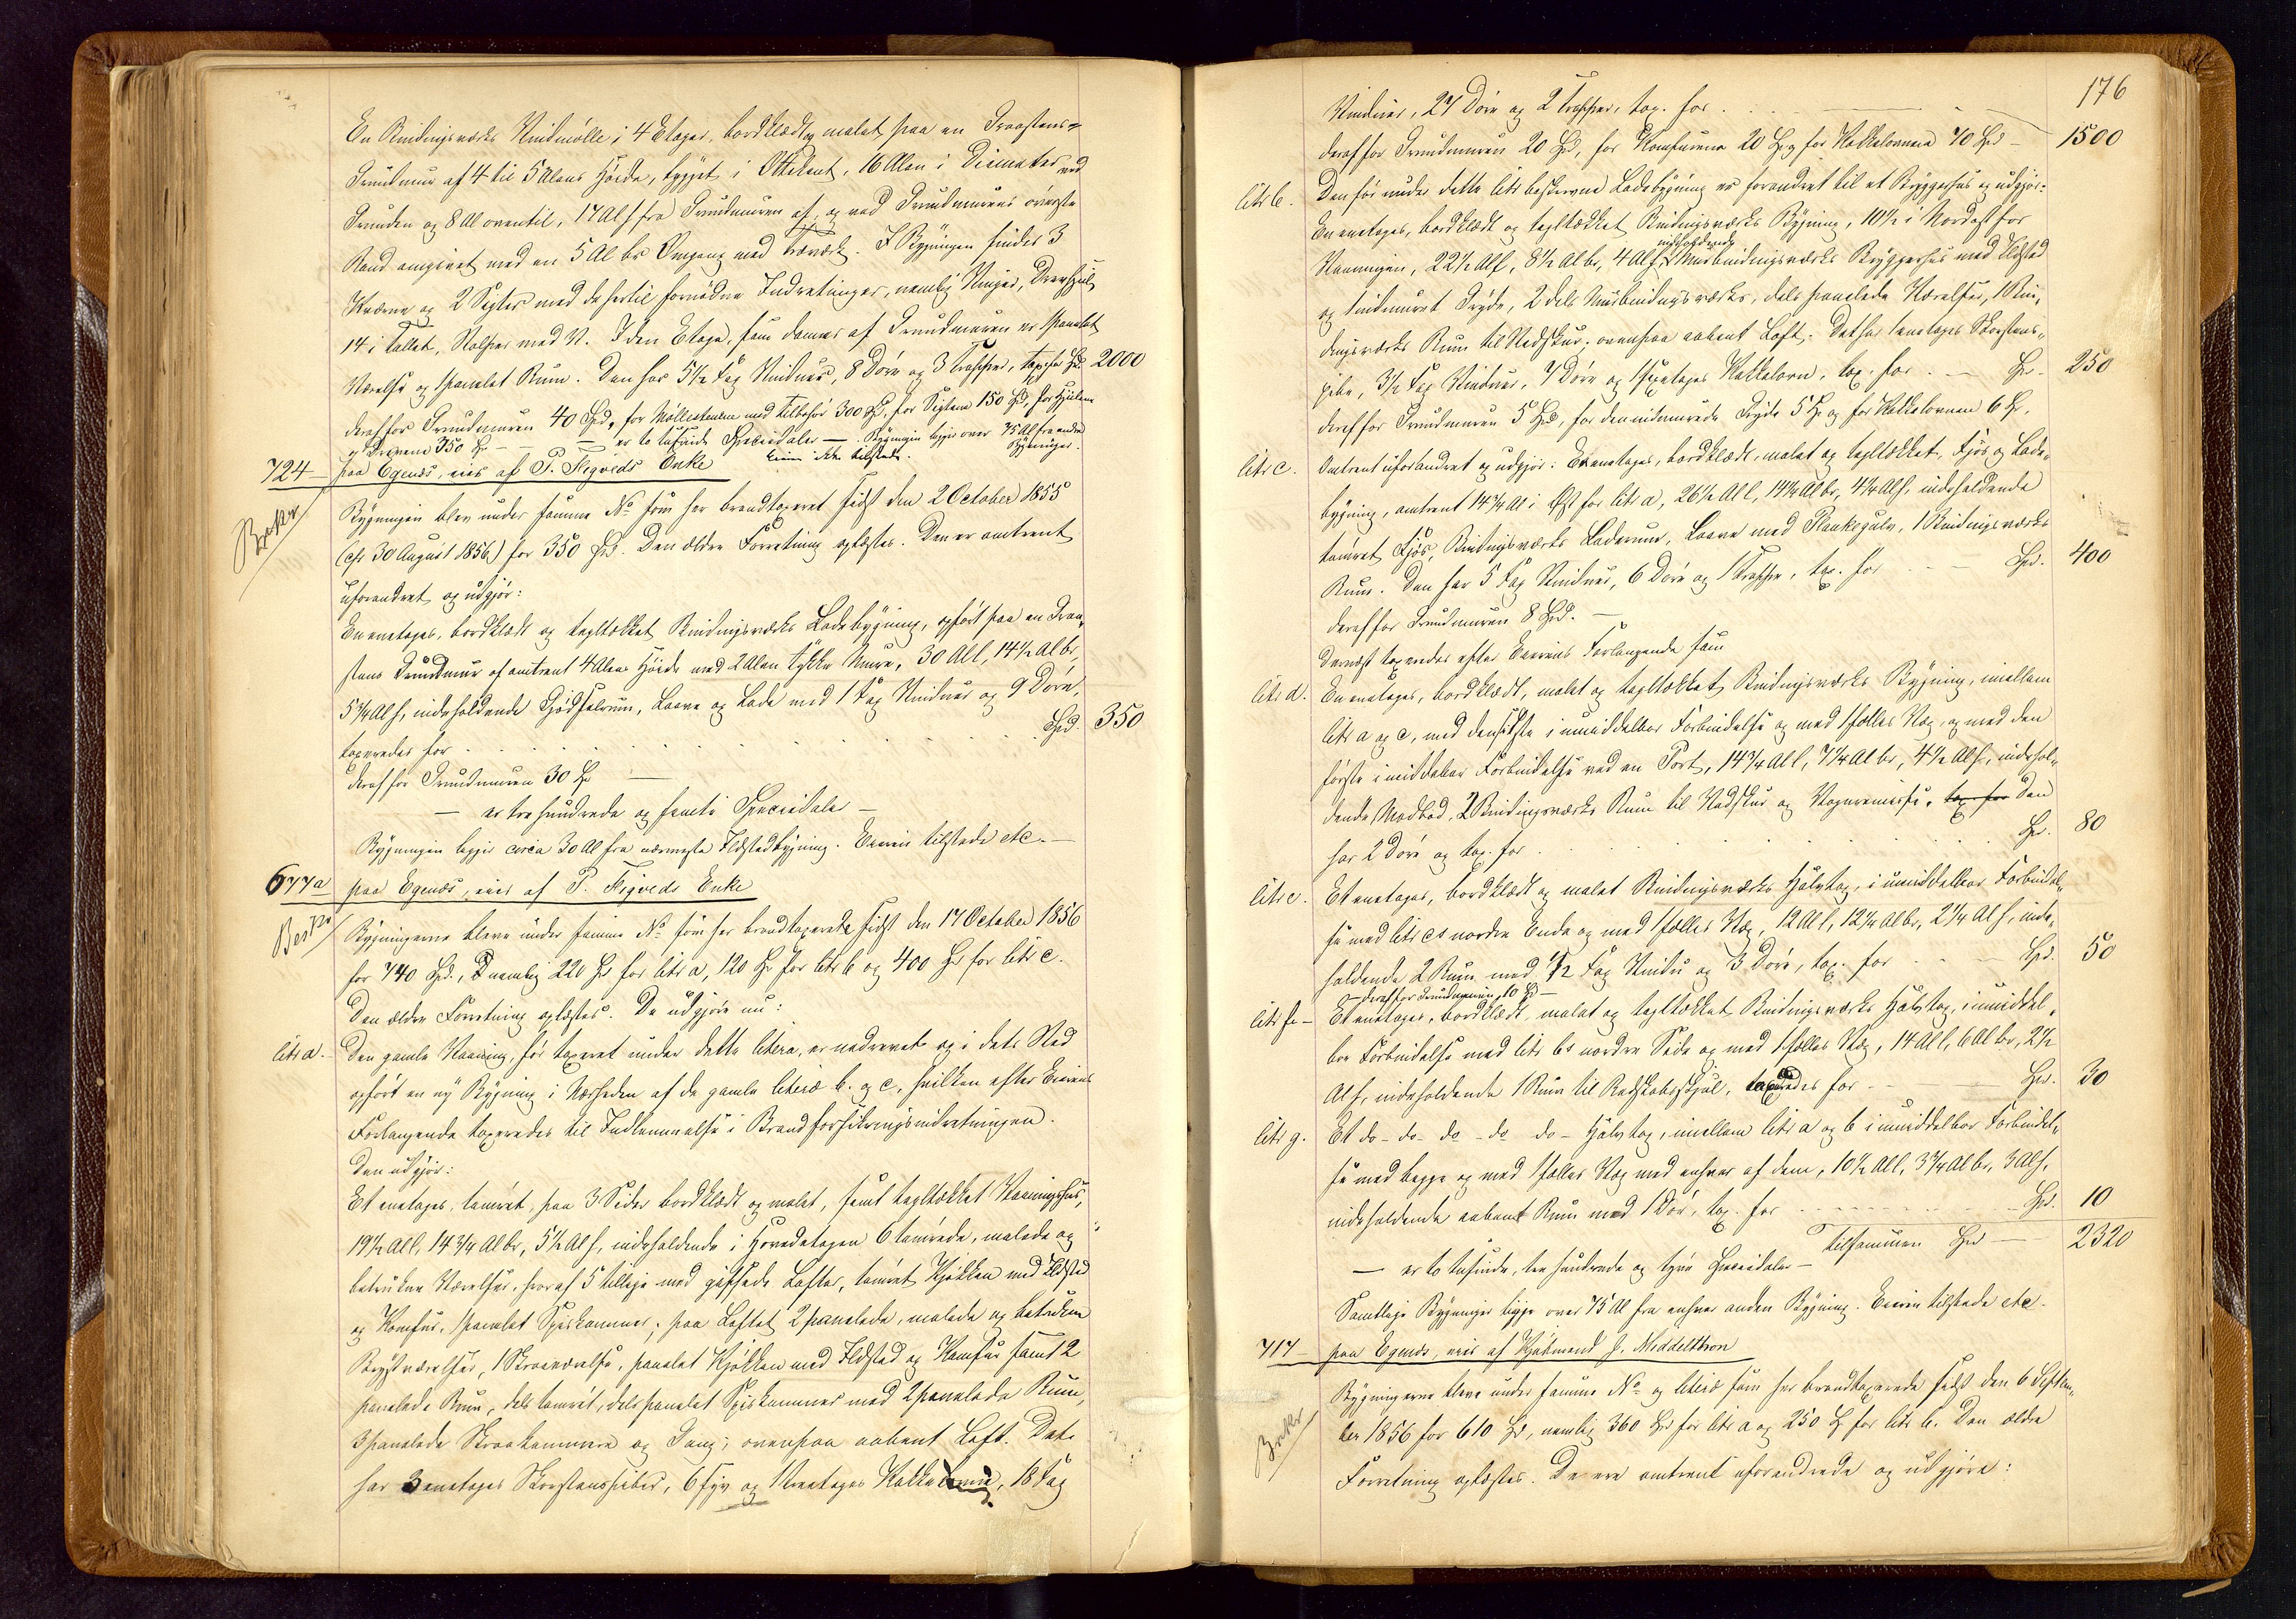 En Bindingsværks Vindmølle i 4 Etager, bordklædt og malet paa en Graastens-
Grundmur af 4 til 5 Alens Høide, bygget i Ottekant, 16 Alen i Diemeter ved
Grunden og 8 Al oventil, 17 Al h fra Grundmuren af, og ved Grundmurens øverste
Rand omgivet med en 5 Al br Omgang med Træværk. I Bygningen findes 3
Kværne og 2 Sigter med de hertil fornødne Indretninger, nemlig Vinger, Drevhjul
14 i Tallet, Stolper med V. I den Etage, som dannes af Grundmuren er 1 panelet
Værelse og 1 panelet Rum. Den har 5 1/2 Fag Vinduer, 8 Døre og 3 Trapper, tax for Spd. 2000
deraf for Grundmuren 40 Spd, for Møllestenene med Tilbehør 300 Spd, for Sigtene 150 Spd, for Hjulene
og Drevene 750 Sp – er to tusinde Speciedaler — Bygningen ligger over 75 Al fra andre
Bygninger. Eieren ikke tilstede.
724 – paa Egenæs, eies af P. Figveds Enke
Besk.
Bygningen blev under samme No som her brandtaxeret sidst den 2 October 1855
(cfr 30 August 1856) for 350 Spd. Den ældre Forretning oplæstes. Den er omtrent
uforandret og udgjør:
En enetages, bordklædt og tegltækket Bindingsværks Ladebygning, opført paa en Graa-
stens Grundmur af omtrent 4 Alens Høide med 2 Alen tykke Mure, 30 Al l, 14 1/2 Al br,
5 3/4 Al h, indeholdende Gjødselrum, Laave og Lade med 1 Fag Vinduer og 9 Døre,
taxeredes for . . . . . . . . . . Spd. 350
deraf for Grundmuren 30 Sp —
— er tre hundrede og femti Speciedaler —
Bygningen ligger circa 30 Al fra nærmeste Ildstedbygning. Eieren tilstede etc. —
677a paa Egenæs, eies af P. Figveds Enke
Besk.
Bygningerne bleve under samme No som her brandtaxerede sidst den 17 October 1856
for 740 Spd., nemlig 220 Sp for litr a, 120 Sp for litr b og 400 Sp for litr c.
Den ældre Forretning oplæstes. De udgjøre nu:
litr a. Den gamle Vaaning, før taxeret under dette litera, er nedrevet og i dets Sted
opført en ny Bygning i Nærheden af de gamle literæ b. og c, hvilken efter Eierens
Forlangende taxeredes til Indlemmelse i Brandforsikringsindretningen.
Den udgjør:
Et enetages, tømret, paa 3 Sider bordklædt og malet, samt tegltækket Vaaningshus,
19 1/2 Al l, 14 3/4 Al br, 5 1/2 Al h, indeholdende i Hovedetagen 6 tømrede, malede og
betrukne Værelser, hvoraf 5 tillige med gipsede Lofter, tømret Kjøkken med Ildsted
og Komfur, 1 panelet Spiskammer, paa Loftet 2 panelede, malede og betrukne
Kvistværelser, 1 Skraaværelse, panelet Kjøkken med Ildsted og Komfur samt 2
panelede Rum, dels tømret, dels panelet Spiskammer med 2 panelede Rum,
3 panelede Skraakammere og Gang; ovenpaa aabent Loft. Det
har 3 enetages Skorstenspiber, 6 fyr og 1 treetages Kakkelovne, 18 Fag
176
Vinduer, 27 Døre og 2 Trapper, tax. for . — 1500
deraf for Grundmuren 20 Spd, for Komfurerne 20 Sp og for Kakkelovnene 70 Spd –
litr b. Den før under dette litr beskrevne Ladebygning er forandret til et Bryggerhus og udgjør:
En enetages, bordklædt og tegltækket Bindingsværks Bygning, 10 1/2 i Nordost for
Vaaningen, 22 1/2 Al l, 8 1/2 Al br, 4 Al h, indeholdende Murbindingsværks Bryggerhus med Ildsted
og indmuret Gryde, 2 dels Murbindingsværks, dels panelede Værelser, 1 Bin-
dingsværks Rum til Vedskur; ovenpaa aabent Loft. Det har 1 enetages Skorstens-
pibe, 3 1/2 Fag Vinduer, 7 Døre og 1 fyretages Kakkelovn, tax. for . — Sp. 250
deraf for Grundmuren 5 Spd, for den indmurede Gryde 5 Sp og for Kakkelovnen 6 Sp.
litr c. Omtrent uforandret og udgjør: En enetages, bordklædt, malet og tegltækket, Fjøs og Lade-
bygning, omtrent 14 3/4 Al i Øst for litr a, 26 1/2 Al l, 14 1/4 Al br, 4 1/4 Al h, indeholdende
tømret Fjøs, Bindingsværks Laderum, Laave med Plankegulv, 1 Bindingsværks
Rum. Den har 5 Fag Vinduer, 6 Døre og 1 Trappe, tax. for – – – Spd. 400
deraf for Grundmuren 8 Spd. —
Dernæst taxeredes efter Eierens Forlangende som
litr d. En enetages, bordklædt, malet og tegltækket Bindingsværks Bygning, imellem
litr a og c, med den sidste i umiddelbar Forbindelse og med 1 fælles Væg, og med den
første i middelbar Forbindelse ved en Port, 14 3/4 Al l, 7 1/4 Al br, 4 1/2 Al h, indehol-
dende Vedbod, 2 Bindingsværks Rum til Vedskur og Vognremisse, tax for Den
har 2 Døre og tax. for . . . . . . Sp. 80
litr e. Et enetages, bordklædt og malet Bindingsværks Halvtag, i umiddelbar Forbindel-
se med litr c's nordre Ende og med 1 fælles Væg, 12 Al l, 12 1/4 Al br, 2 1/4 Al h, inde-
holdende 2 Rum med 1/2 Fag Vindu og 3 Døre, tax. for – – – Spd. 50
— deraf for Grundmuren 10 Spd —
litr f. – Et enetages, bordklædt, malet og tegltækket Bindingsværks Halvtag, i umiddel-
bar Forbindelse med litr b's nordre Side og med 1 fælles Væg, 14 Al l, 6 Al br, 2 1/2
Al h, indeholdende 1 Rum til Redskabsskjul, taxeredes for – – Sp. 30
litr g. Et do – do – do – do do – Halvtag, imellem litr a og b i umiddelbar Forbindel-
se med begge og med 1 fælles Væg med enhver af dem, 10 1/2 Al l, 3 3/4 Al br, 3 Al h,
indeholdende aabent Rum med 1 Dør, tax. for – – – – Spd. 10
Tilsammen Spd — 2320
— er to tusinde, tre hundrede og tyve Speciedaler —
Samtlige Bygninger ligge over 75 Al fra enhver anden Bygning. Eieren tilstede etc.
717 – paa Egenæs, eies af Kjøbmand J. Middelthon
Besk.
Bygningerne bleve under samme No og literæ som her brandtaxerede sidst den 6 Septem-
ber 1856 for 610 Sp, nemlig 360 Sp for litr a og 250 Sp for litr b. Den ældre
Forretning oplæstes. De ere omtrent uforandrede og udgjøre: